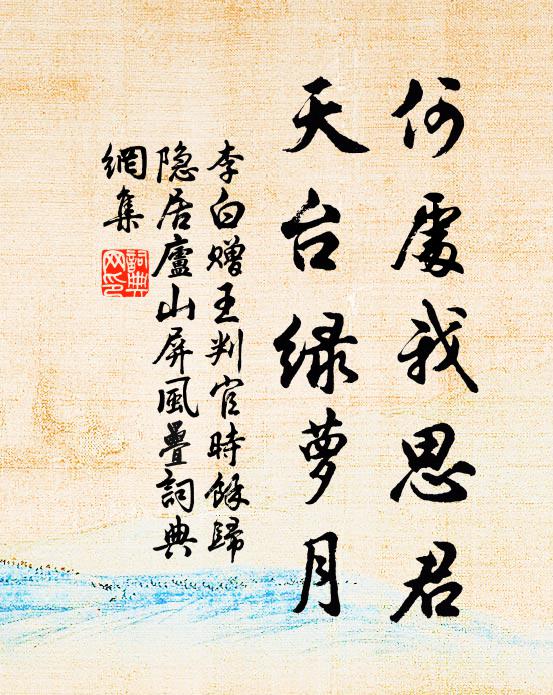 何處我思君
天台绿萝月
李白赠王判官時餘歸
隐居廬山屏風疊詞典
網集
詞典网印